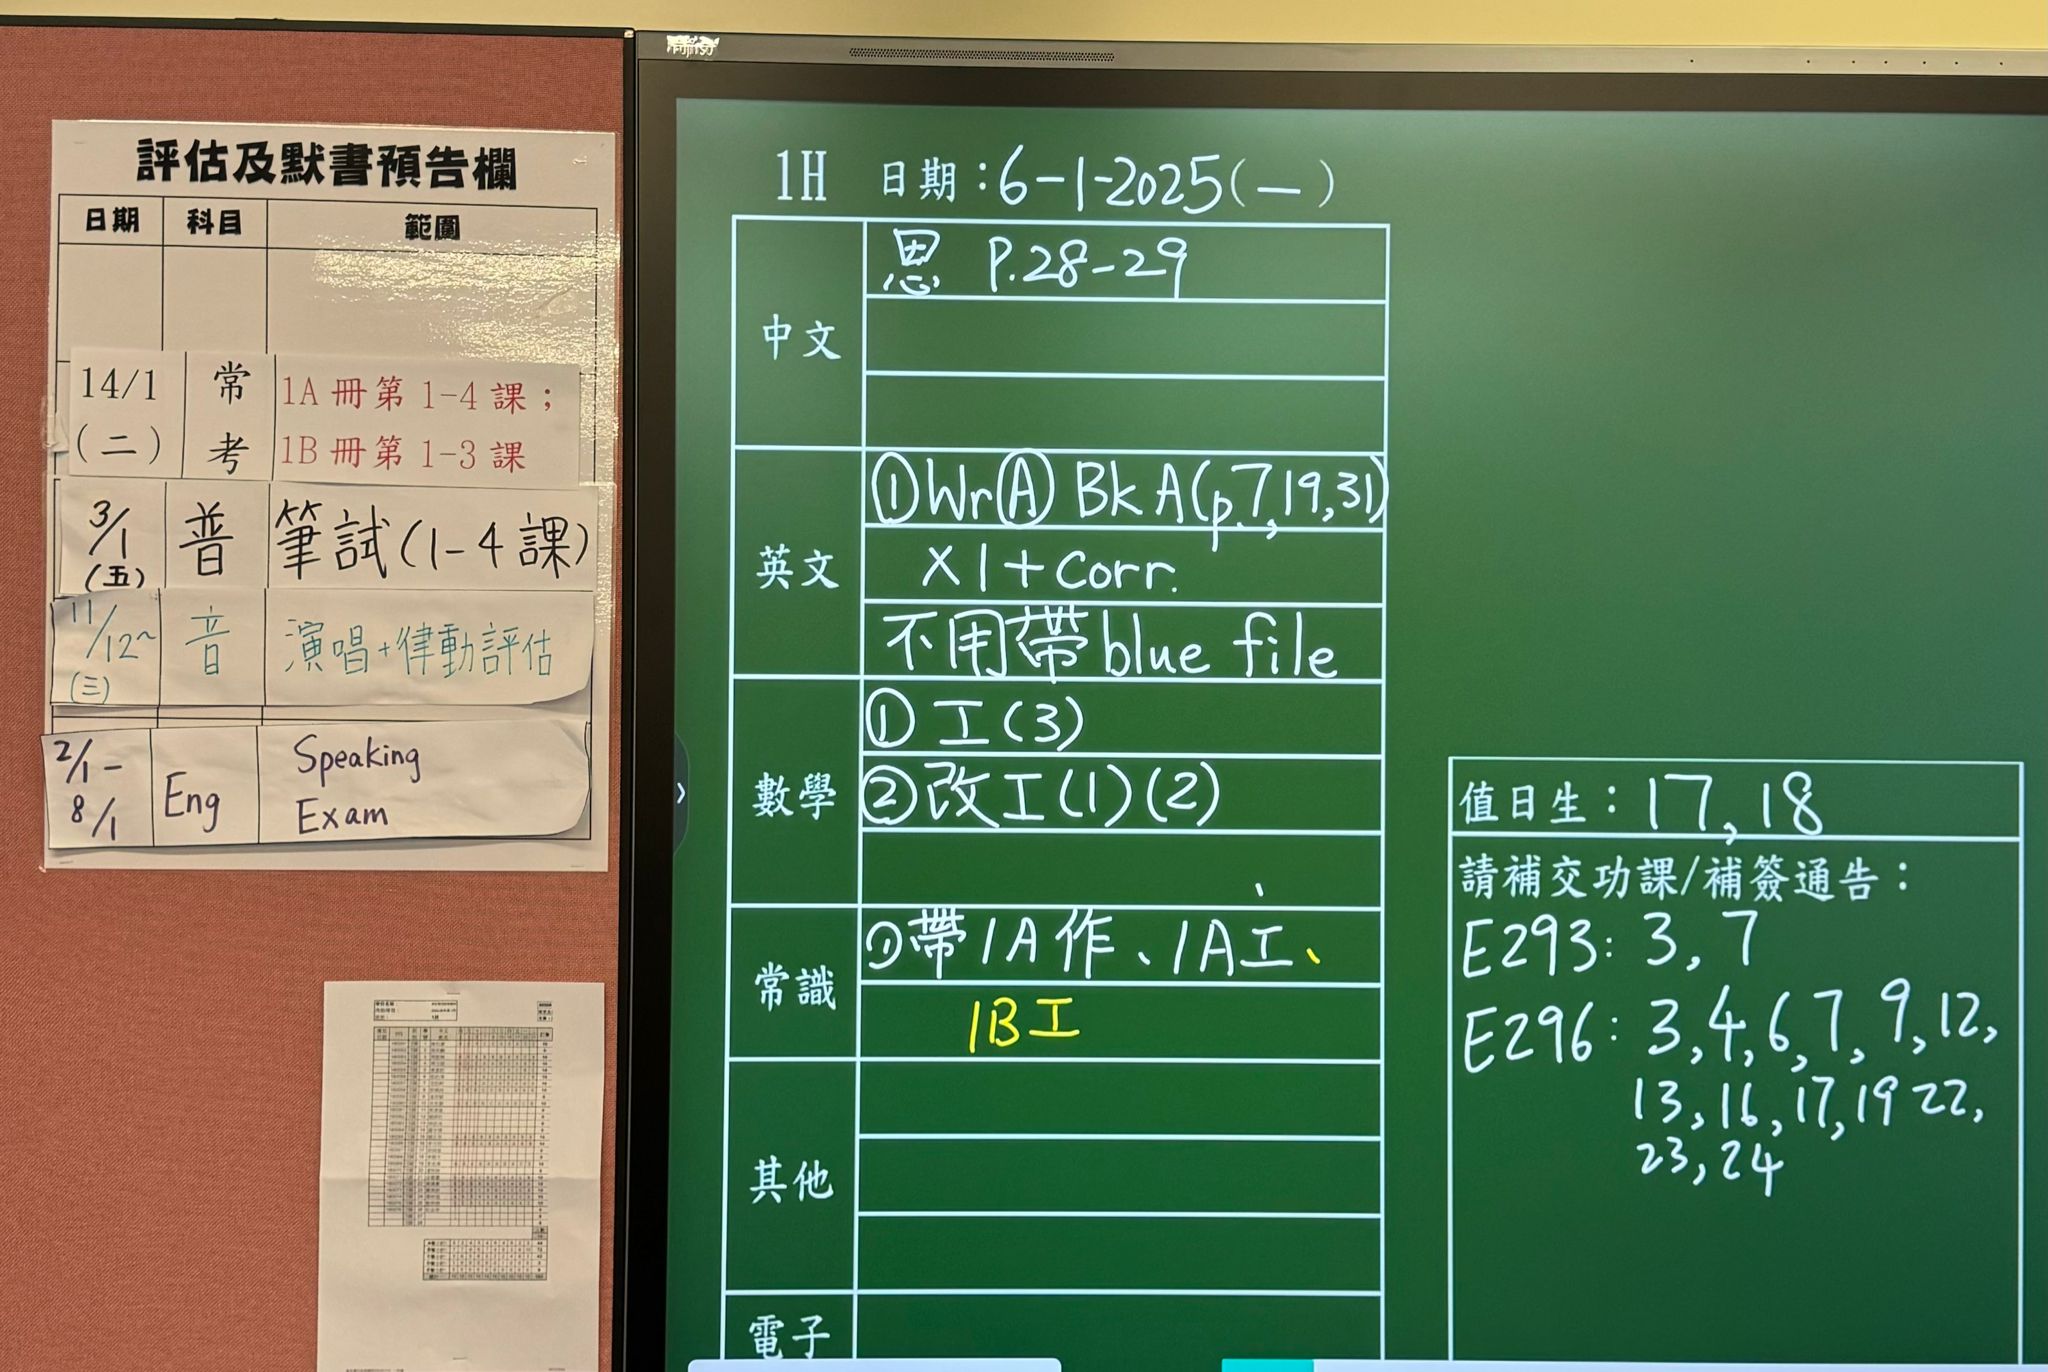 評估及默書預告欄
日期 科目 範圍
14/1 (二) 常考 1A 冊第 1-4 課；
1B 冊第 1-3 課
3/1 (五) 普 筆試(1-4課)
11/12~ (三) 音 演唱+律動評估
2/1-8/1 Eng Speaking
Exam
1H 日期：6-1-2025(一)
中文
思 P.28-29
英文
①Wr Ⓐ Bk A(p.7,19,31)
x1+corr.
不用帶blue file
數學
① 工(3)
②改工(1)(2)
常識
①帶1A作、1A工、
1B工
其他
電子
值日生：17,18
請補交功課/補簽通告：
E293: 3,7
E296: 3,4,6,7,9,12,
13,16,17,19 22,
23,24